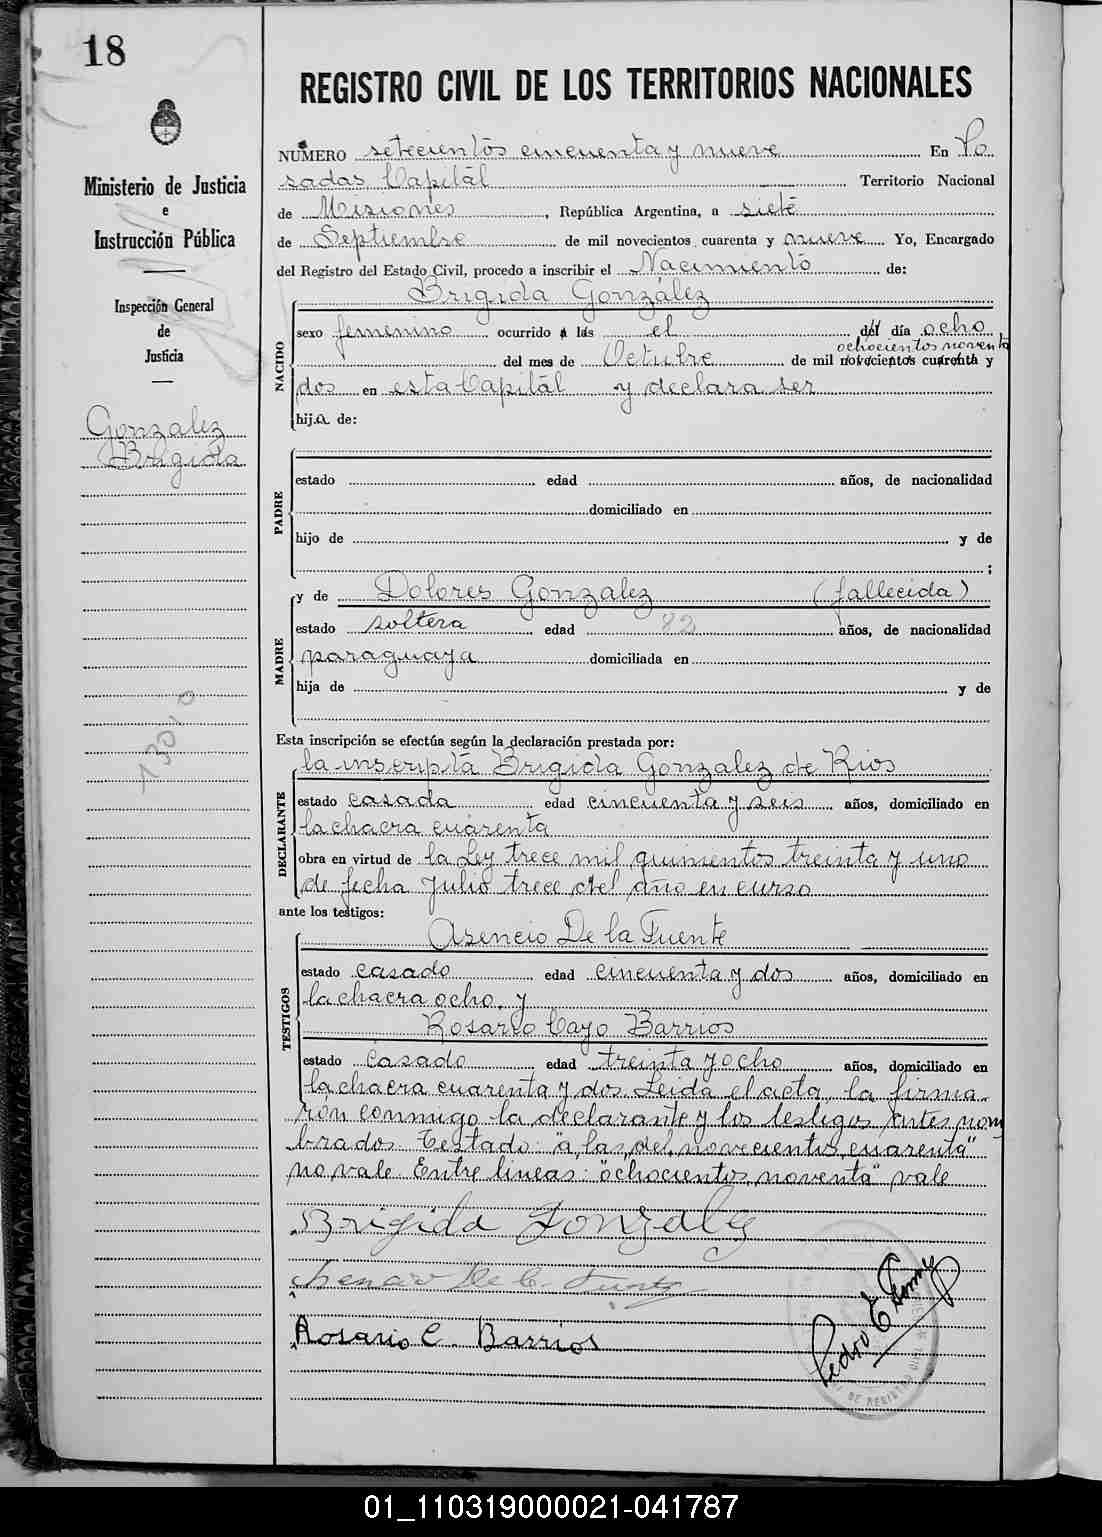 18
Ministerio de Justicia
e
Instrucción Pública
Inspección General
de
Justicia
Gonzalez
Brigida
13010
REGISTRO CIVIL DE LOS TERRITORIOS NACIONALES
NÚMERO setecientos cincuenta y nueve En Po
sadas Capital Territorio Nacional
de Misiones, República Argentina, a siete
de Septiembre de mil novecientos cuarenta y nueve Yo, Encargado
del Registro del Estado Civil, procedo a inscribir el Nacimiento de:
NACIDO
Brigida González
sexo femenino ocurrido a las el del día ocho
ochocientos noventa
del mes de Octubre de mil novecientos cuarenta y
dos en esta Capital y declara ser
hija de:
PADRE
estado edad años, de nacionalidad
domiciliado en
hijo de y de
;
MADRE
y de Dolores Gonzalez (fallecida)
estado soltera edad 82 años, de nacionalidad
paraguaya domiciliada en
hija de y de
Esta inscripción se efectúa según la declaración prestada por:
DECLARANTE
la inscripta Brigida Gonzalez de Rios
estado casada edad cincuenta y seis años, domiciliado en
la chacra cuarenta
obra en virtud de la Ley trece mil quinientos treinta y uno
de fecha Julio trece del año en curso
ante los testigos:
TESTIGOS
Asencio De la Fuente
estado casado edad cincuenta y dos años, domiciliado en
la chacra ocho y
Rosario Cayo Barrios
estado casado edad treinta y ocho años, domiciliado en
la chacra cuarenta y dos. Leida el acta, la firma-
rón conmigo la declarante y los testigos antes nom
brados Testado: "a las, del, novecientos, cuarenta"
no vale. Entre lineas: "ochocientos noventa" vale
Brigida Gonzalez
De la Fuente
Rosario C. Barrios
Pedro E
01_110319000021-041787